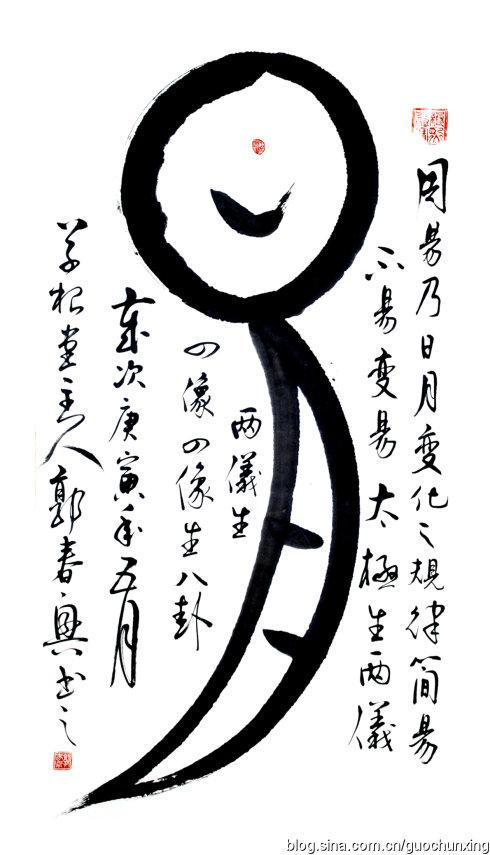 易
周易乃日月变化之规律简易
不易变易太极生两儀
两儀生
四像四像生八卦
歲次庚寅年五月
草根堂主人郭春興书之
blog.sina.com.cn/guochunxing